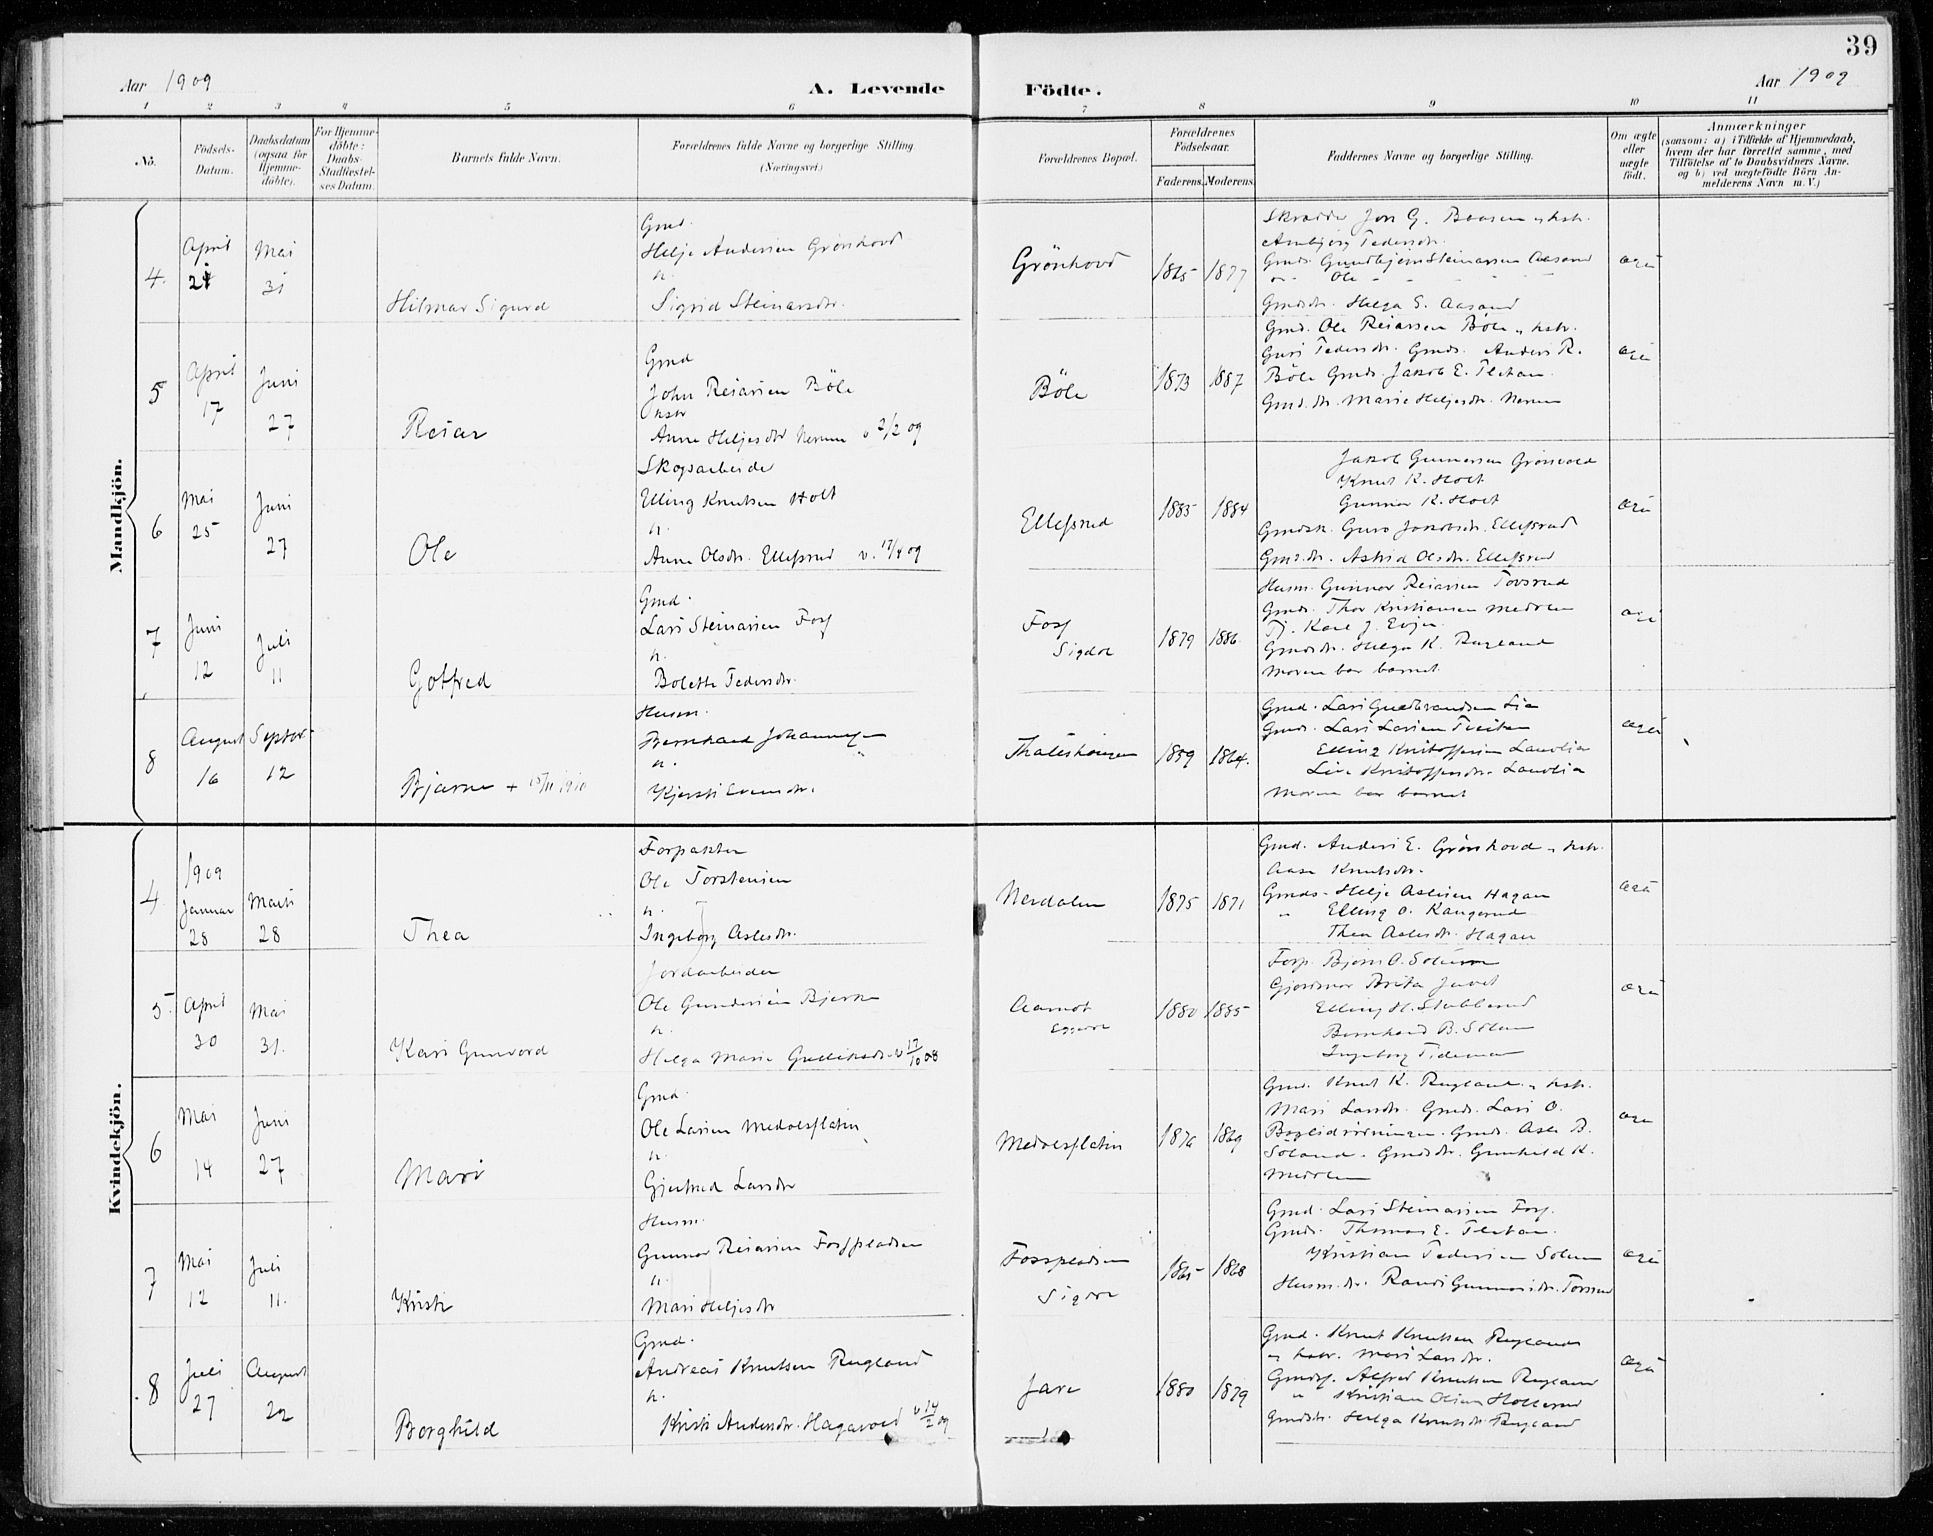 39
Aar 1909
A. Levende Födte.
Aar 1909
1 2 3 4 5 6 7 8 9 10 11
No.
Födsels-
Datum.
Daabsdatum
(ogsaa for
Hjemme-
döbte).
For Hjemme-
döbte:
Daabs-
Stadfæstel-
ses Datum.
Barnets fulde Navn.
Forældrenes fulde Navne og borgerlige Stilling
(Næringsvei.)
Forældrenes Bopæl.
Forældrenes
Födselsaar.
Faderens. Moderens.
Faddernes Navne og borgerlige Stilling.
Om ægte
eller
uægte
födt.
Anmærkninger
(saasom: a) i Tilfælde af Hjemmedaab,
hvem der har forrettet samme, med
Tilföielse af to Daabsvidners Navne.
og b) ved uægtefödte Börn An-
melderens Navn m. V.)
Mandkjön.
4. April 21 Mai 31
Hilmar Sigurd
Gmd.
Helje Andersen Grönhovd
h.
Sigrid Steinarsdtr.
Grönhovd
1865 1877
Skrædder Jon G.
Gmds. Gundbjörn Steinarsen Aasand
Ole
Gmdsdtr. Helga S. Aasand
ægte
5 April 17 Juni 27
Reiar
Gmd
John Reiarsen Böle
hstr
Anne Heljesdtr Nerum v 2/2 09
Böle
1873 1887
Gmd. Ole Reiarsen Böle og hstr.
Guri Tedersdtr. Gmds. Anders R.
Böle Gmds. Jakob E. Fletan
Gmd.dtr. Marie Heljesdtr. Nerum
ægte
6 Mai 25 Juni 27
Ole
Skogsarbeider
Elling Knutsen Holt
h.
Anne Olsdtr. Ellefsrud v. 17/4 09
Ellefsrud
1885 1884
Jakob Gunnarsen Grönvold
Knut K. Holt
Gunnar K. Holt
Gmdsk. Guro Jakobsdtr. Ellefsrud
Gmds.dtr. Astrid Olsdtr. Ellefsrud
ægte
7 Juni 12 Juli 11
Gotfred
Gmd.
Lars Steinarsen Foss
h.
Bolette Tedersdtr.
Foss
Sigdal
1879 1886.
Husm. Gunnar Reiarsen Torsrud
Gmds. Thor Kristiansen Medalen
Tj. Karl J. Evju
Gmdsdtr. Helga K. Rugland
Moren bar barnet
ægte
8 August 16 Septbr. 12
Bjarne + 15/11 1910
Husm.
Bernhard Johannesen
h.
Kjersti Evensdtr.
1859 1864.
Gmd. Lars Gudbrandsen Lia
Gmds. Lars Larsen
Elling Kristoffersen Lavolia
Live Kristoffersdtr. Lavolia
Moren bar barnet
ægte
Kvindekjön.
4 1909 Januar 28 Marts 28
Thea
Forpakter
Ole Torstensen
h.
Ingeborg Aslesdtr.
Nerdalen
1875 1871
Gmd. Anders E. Grönhovd og hstr.
Aase Knutsdtr.
Gmds. Helje Aslesen Hagan
" Elling O. Kangerud
Thea Aslesdtr. Hagan
ægte
5 April 30 Mai 31.
Kari Gunvord
Jordarbeider
Ole Gundersen Bjerke
h.
Helga Marie v 17/10 08
Aamot
1880 1885
Forp. Björn O. Solum
Gjordmor Brita Juvet
Elling H. Stubberud
Bernhard B. Solum
Ingeborg Tideman
ægte
6 Mai 14 Juni 27
Mari
Gmd.
Ole Larsen Medalsflatin
h.
Gjertrud Larsdtr
Medalsflatin
1876 1869
Gmd. Knut K. Rugland og hstr.
Mari Larsdtr. Gmds. Lars O.
Gmds. Asle B.
Söland. Gmdsdtr. Gunhild K.
Medalen
ægte
7 Mai 12 Juli 11.
Kristi
Husm.
Gunnar Reiarsen Fosspladsen
h.
Mari Heljesdtr
Fosspladsen
Sigdal
1865 1868
Gmd. Lars Steinarsen Foss.
Gmds. Thomas E. Fletan.
Kristian Tedersen Solum
Husm.dtr. Randi Gunnarsdtr. Torsrud
ægte
8 Juli 27 August 22
Borghild
Gmd.
Andreas Knutsen Rugland
h.
Kristi Andersdtr. Hagavold v 14/2 09
Jare
1880 1879
Gmd. Knut Knutsen Rugland
og hstr. Mari Larsdtr.
Gmds. Alfred Knutsen Rugland
" Kristian Olsen Hollerud
Gmdsdtr. Helga Knutsdtr Rugland
ægte